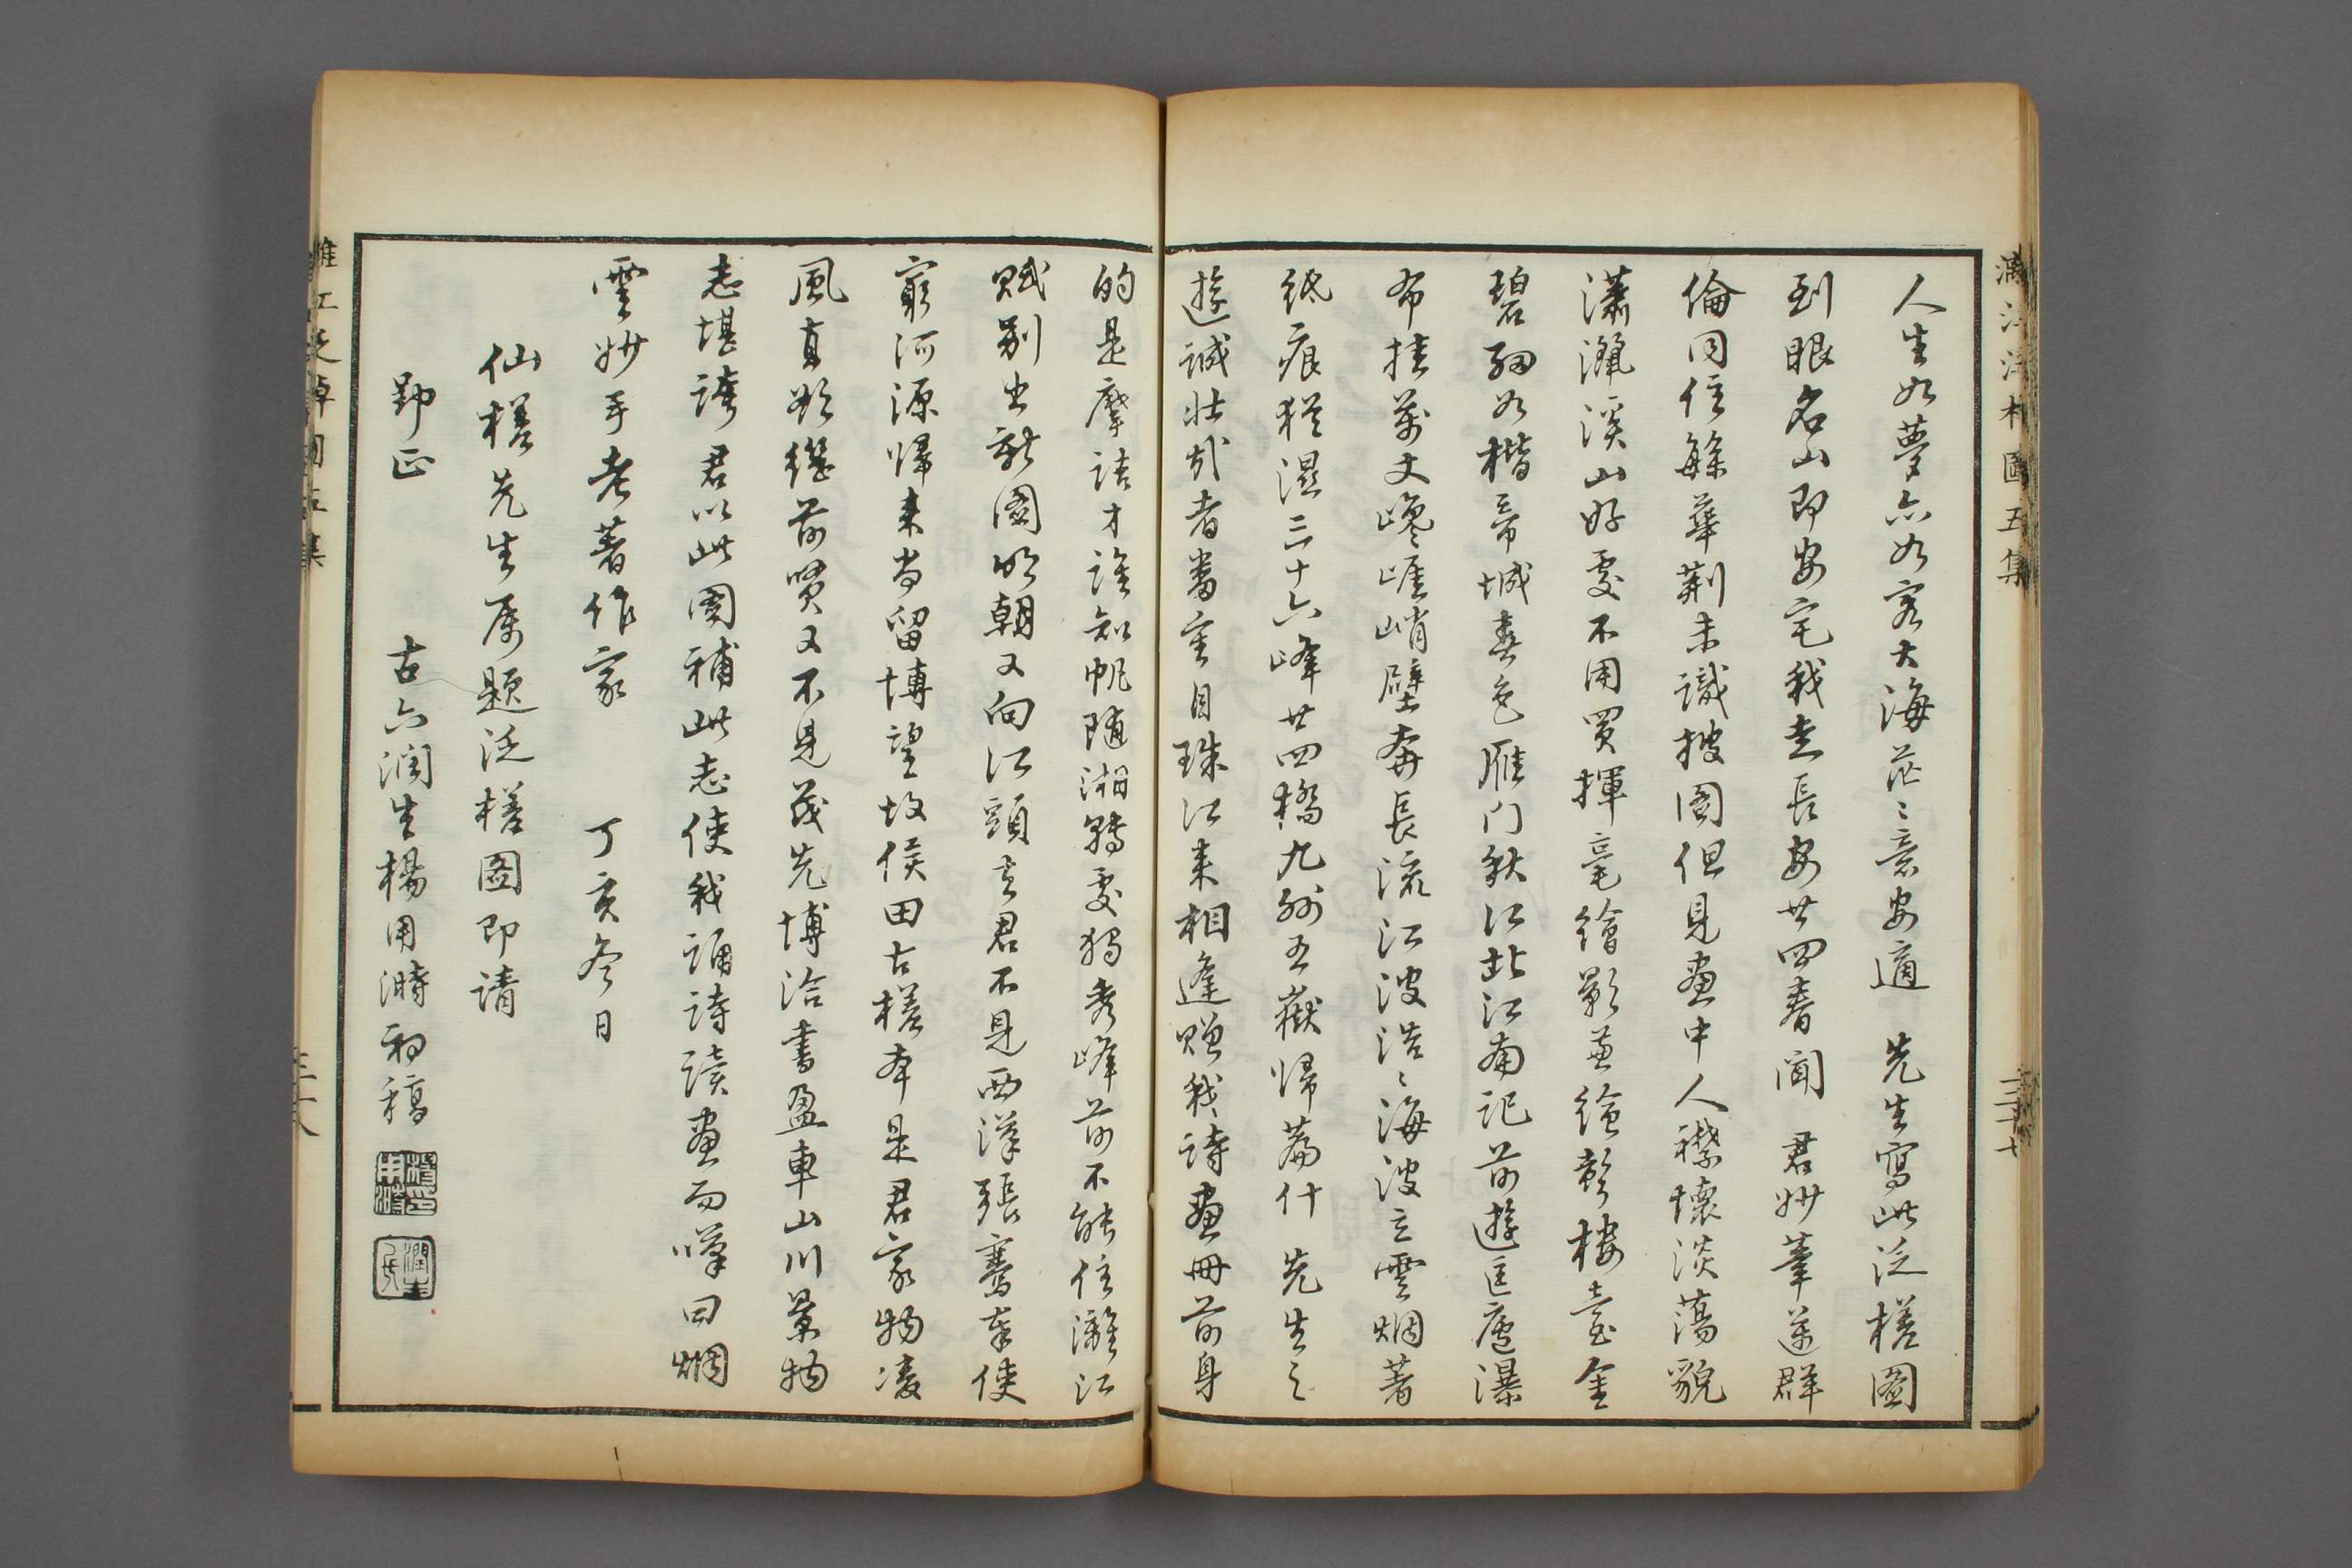 人生如夢亦如客大海茫茫意安適　先生寫此泛槎圖
到眼名山即安宅我走長安廿四春聞　君妙筆邁群
倫同住繁華荆未識披圖但見畫中人襟懷淡蕩貌
瀟灑溪山好處不用買揮毫繪影兼繪聲樓臺金
碧細如楷帝城春色雁门秋江北江南記前遊匡廬瀑
布挂萬丈巉崖峭壁奔長流江波浩浩海波立雲烟著
紙痕猶濕三十六峰廿四橋九州五嶽歸篇什先生之
遊誠壯哉者番重自珠江來相逢贈我詩畫冊前身
的是摩詰才誰知帆隨湘轉處獨秀峰前不能住灕江
賦別出新圖明朝又向江頭去君不見西漢張騫奉使
窮河源歸來尚留博望坡侯田古槎本是君家物凌
風直欲繼前賢又不見茂先博洽書盈車山川景物
志堪誇君以此圖補此志使我誦詩讀畫而嘆曰烟
雲妙手老著作家　丁亥冬日
仙槎先生屬題泛槎圖即請
勘正　古六潤生楊用溡初稿
灕江泛棹圖五集
三十七
三十八